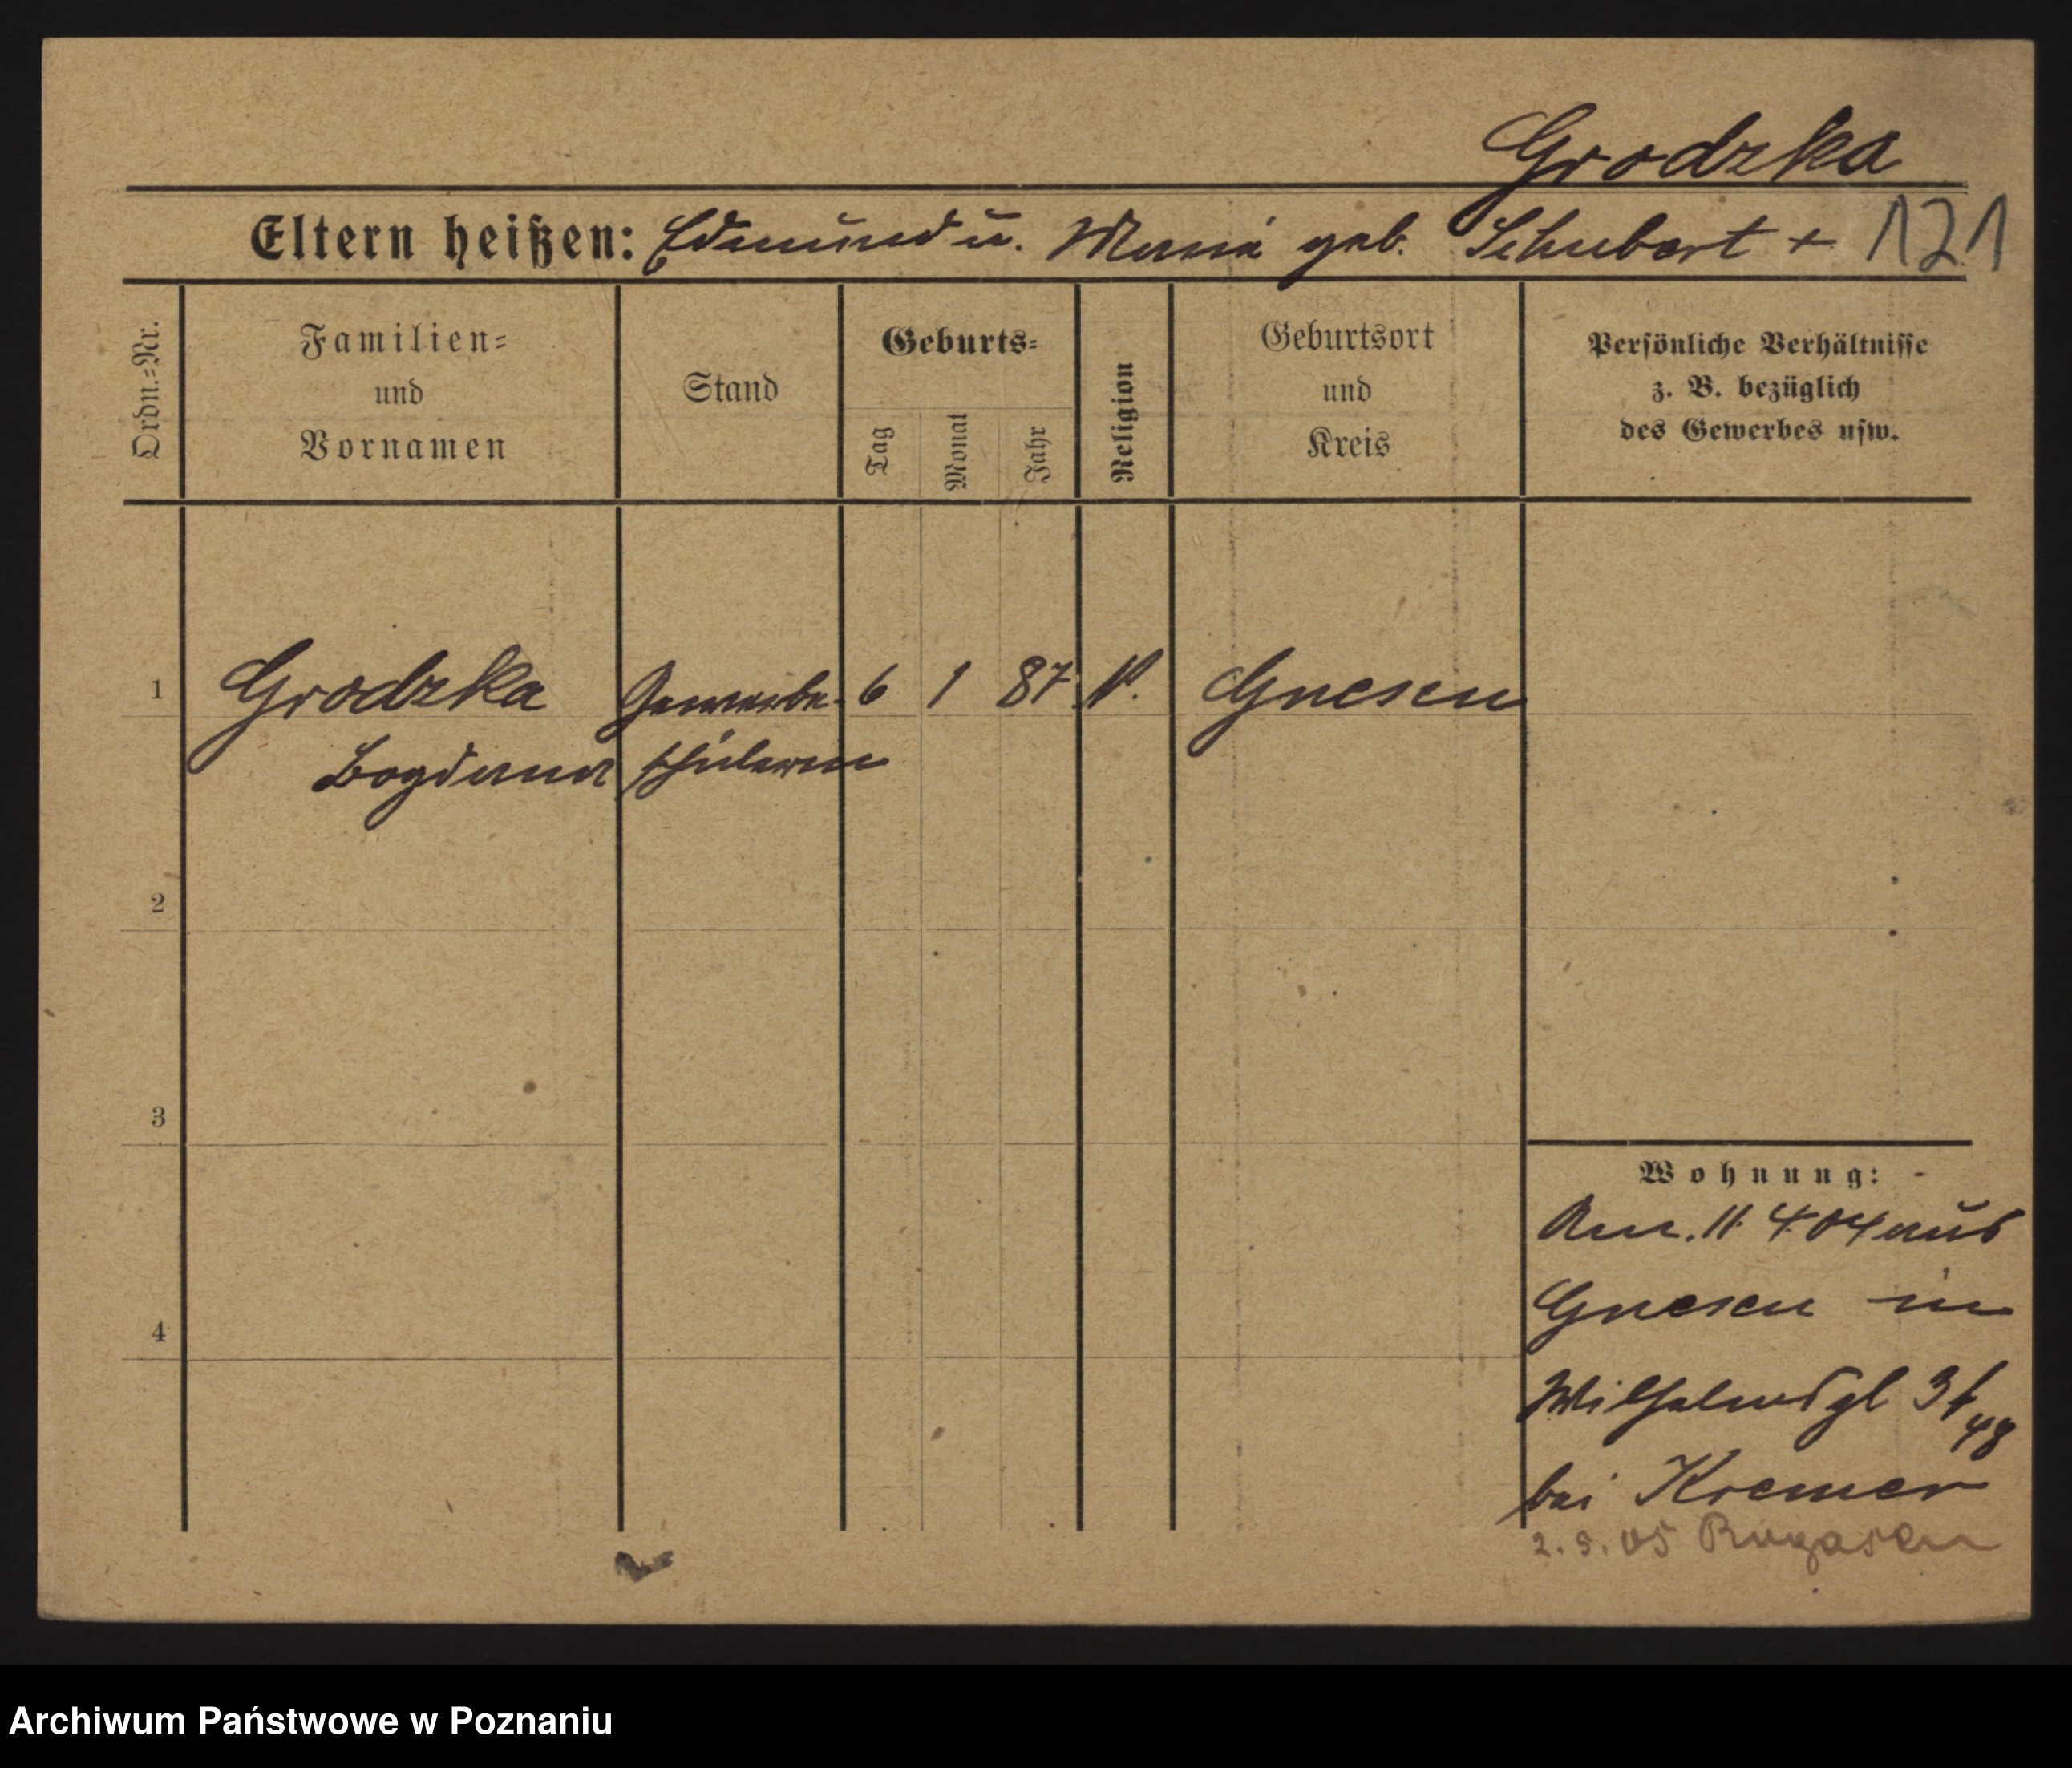 Grodzka
Eltern heißen: Edmund u. Maria geb. Schubert + 121
Ordn.-Nr.
Familien-
und
Vornamen
Stand
Geburts-
Tag
Monat
Jahr
Religion
Geburtsort
und
Kreis
Persönliche Verhältnisse
z. B. bezüglich
des Gewerbes usw.
1 Grodzka Gewerbe- 6 1 87 k. Gnesen
Bogdana schülerin
2
3
4
Wohnung:
Am. 11 4 04 aus
Gnesen in
Wilhelmspl
bei Kremer
05 Rogasen
Archiwum Państwowe w Poznaniu